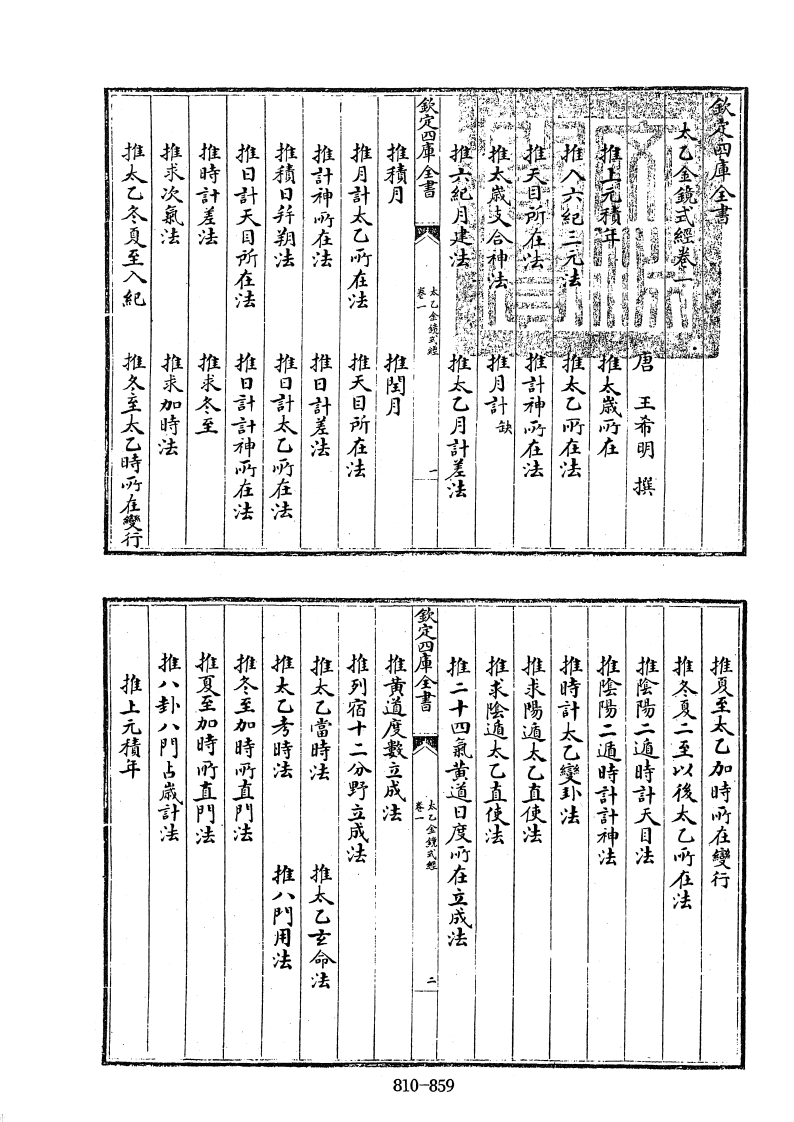 欽定四庫全書
太乙金鏡式經卷一
唐 王希明 撰
推上元積年 推太歲所在
推入六紀三元法 推太乙所在法
推天目所在法 推計神所在法
推太歲支合神法 推月計缺
推六紀月建法 推太乙月計差法
欽定四庫全書
太乙金鏡式經
卷一
一
推積月 推閏月
推月計太乙所在法 推天目所在法
推計神所在法 推日計差法
推積日并朔法 推日計太乙所在法
推日計天目所在法 推日計計神所在法
推時計差法 推求冬至
推求次氣法 推求加時法
推太乙冬夏至入紀 推冬至太乙時所在變行
推夏至太乙加時所在變行
推冬夏二至以後太乙所在法
推陰陽二遁時計天目法
推陰陽二遁時計計神法
推時計太乙變卦法
推求陽遁太乙直使法
推求陰遁太乙直使法
推二十四氣黃道日度所在立成法
欽定四庫全書
太乙金鏡式經
卷一
二
推黃道度數立成法
推列宿十二分野立成法
推太乙當時法 推太乙玄命法
推太乙考時法 推八門用法
推冬至加時所直門法
推夏至加時所直門法
推八卦八門占歲計法
推上元積年
810-859